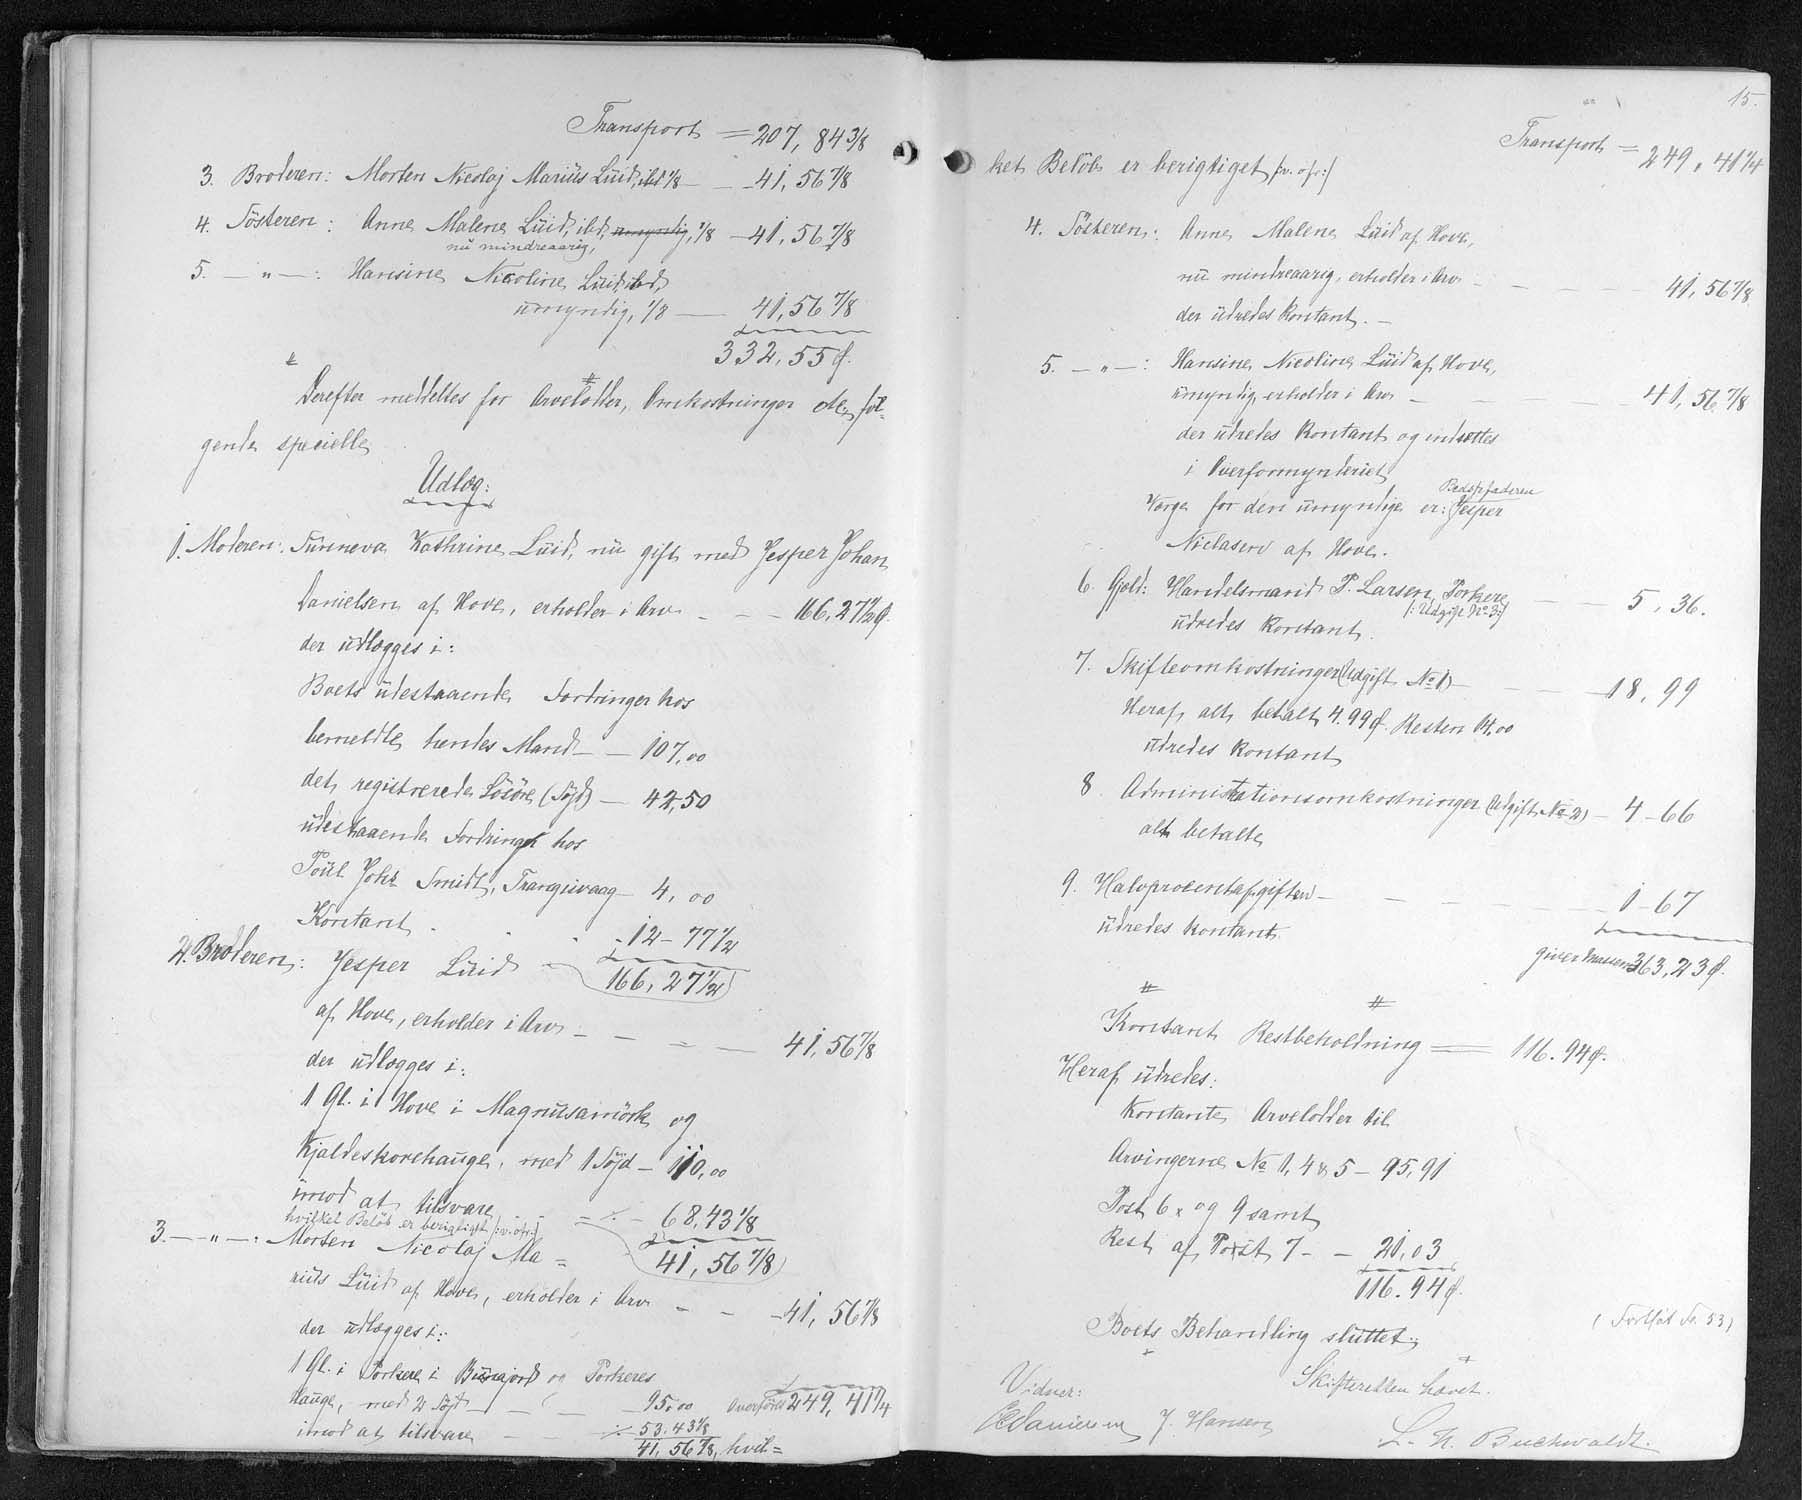 Transport = 207, 84 3/8
3. Broderen: Morten Nicolaj Marius Lüid, ibd. 1/8 — - 41, 56 7/8
4. Sösteren: Anne Malene Lüid, ibd, umyndig, 1/8 - 41, 56 7/8
nu mindreaarig,
5. — " — : Hansine Nicoline Lüid, ibd,
umyndig, 1/8 — 41, 56 7/8
332, 55 Ø.
Derefter meddeltes for Arvelodder, Omkostninger etc. föl-
gende specielle
Udlæg:
1. Moderen: Sünneva Kathrine Lüid, nu gift med Jesper Johan
Danielsen af Hove, erholder i Arv - - - 166, 27 1/2 Ø.
der udlægges i:
Boets udestaaende Fordringer hos
bemeldte hendes Mand — 107,00
det registrerede Lösöre (Söjd) — 42,50
udestaaende Fordringer hos
Poul Johs Smidt, Trangisvaag — 4, 00
Kontant - - 12 - 77 1/2
166, 27 1/2
2. Broderen: Jesper Lüid
af Hove, erholder i Arv - - - — 41, 56 7/8
der udlægges i:
1 Gl. i Hove i Magnusamörk og
Kjaldeskorehauge, med 1 Söjd — 110,00
imod at tilsvare - - = ÷ - 68, 43 1/8
hvilket Belöb er berigtiget /:v. o. fr:/
41, 56 7/8
3. — " — : Morten Nicolaj Ma =
rius Lüid af Hove, erholder i Arv - - - 41, 56 7/8
der udlægges i:
1 Gl. i Porkere i Búnajord og Porkeres
Hauge, med 2 Söjd — - — 95,00 Overföres 249, 41 1/4
imod at tilsvare - — ÷ 53. 43 1/8
41, 56 7/8, hvil=
15.
Transport = 249, 41 1/4
ket Belöb er berigtiget /:v. o fr:/
4. Sösteren: Anne Malene Lüid af Hove,
nu mindreaarig, erholder i Arv - - - - 41, 56 7/8
der udredes kontant. —
5. — " — : Hansine Nicoline Lüid af Hove,
umyndig erholder i Arv - - - 41, 56 7/8
der udredes kontant og indsættes
i Overformynderiet
Værge for den umyndige er: Jesper
Niclasen af Hove.
6. Gjeld: Handelsmand P. Larsen, Porkere — 5, 36.
/: Udgift No 3:/
udredes kontant.
7. Skifteomkostninger (Udgift No 1) - - - 18, 99
Heraf alt betalt 4.99 Ø. Resten 14,00
udredes kontant
8. Administrationsomkostninger (Udgift No 2) — 4 - 66
alt betalte
9. Halvprocentafgiften - - - - 1 - 67
udredes kontant.
giver Massens 363, 23 Ø.
Kontant Restbeholdning = 116. 94 Ø.
Heraf udredes:
Kontante Arvelodder til
Arvingerne No 1, 4 & 5 — 95, 91
Post 6 og 9 samt
Rest af Post 7 - - 21, 03
116. 94 Ø.
Boets Behandling sluttet.
Skifteretten hævet.
Vidner:
J. Hansen
L. N. Buchwaldt.